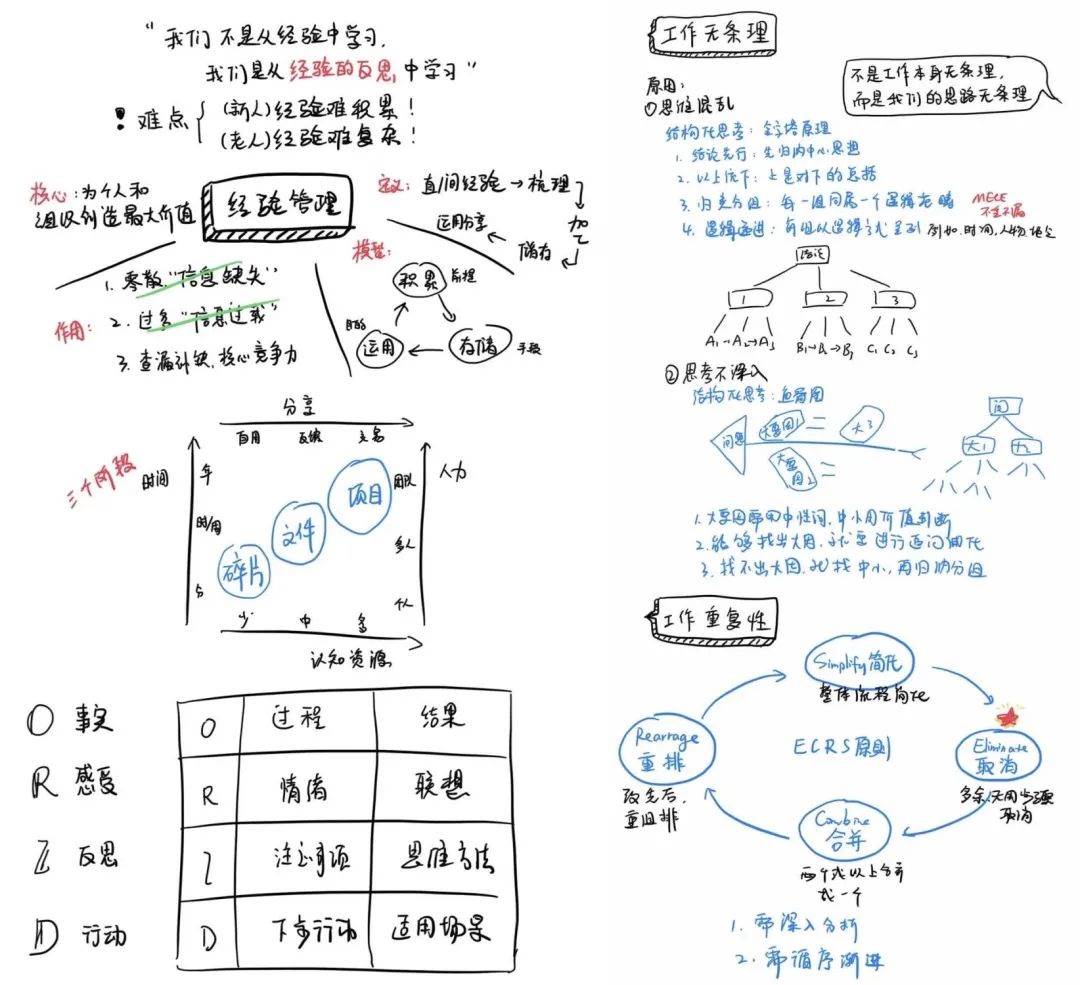 “我们不是从经验中学习,
我们是从经验的反思中学习”
! 难点
(新人)经验难积累!
(老人)经验难复杂!
核心:为个人和
组织创造最大价值
经验管理
定义: 直/间经验→梳理
加工
储存
运用分享
作用:
1. 零散“信息缺失”
2. 过多“信息过载”
3. 查漏补缺,核心竞争力
模型:
积累 前提
存储 手段
运用 目的
三个阶段
分享
自用 互惠
时间
年
时/周
分
碎片
文件
项目
人力
团队
多人
个人
少 中 多
认知资源
O 事实
R 感受
I 反思
D 行动
O 过程 结果
R 情绪 联想
I 注意事项 思维方法
D 下步行动 适用场景
工作无条理
不是工作本身无条理,
而是我们的思路无条理
原因:
①思维混乱
结构化思考: 金字塔原理
1. 结论先行: 先归纳中心思想
2. 以上统下: 上是对下的总括
3. 归类分组: 每一组同属一个逻辑范畴
MECE
不重不漏
4. 逻辑递进: 每组以逻辑方式呈列 例如,时间,人物,地点
结论
1 2 3
A₁→A₂→A₃ B₁→B₂→B₃ C₁ C₂ C₃
②思考不深入
结构化思考: 鱼骨图
问题
大要因1
大3
大要因2
问
大1 大2
1. 大要因常用中性词,中小用价值判断
2. 能够找出大因,就要进行追问细化
3. 找不出大因,就找中小,再归纳分组
工作重复性
Simplify 简化
整体流程简化
Rearrage
重排
改先后,
重组排
ECRS原则
Eliminate
取消
多余无用步骤
取消
Combine
合并
两个或以上合并
成一个
1. 需深入分析
2. 需循序渐进